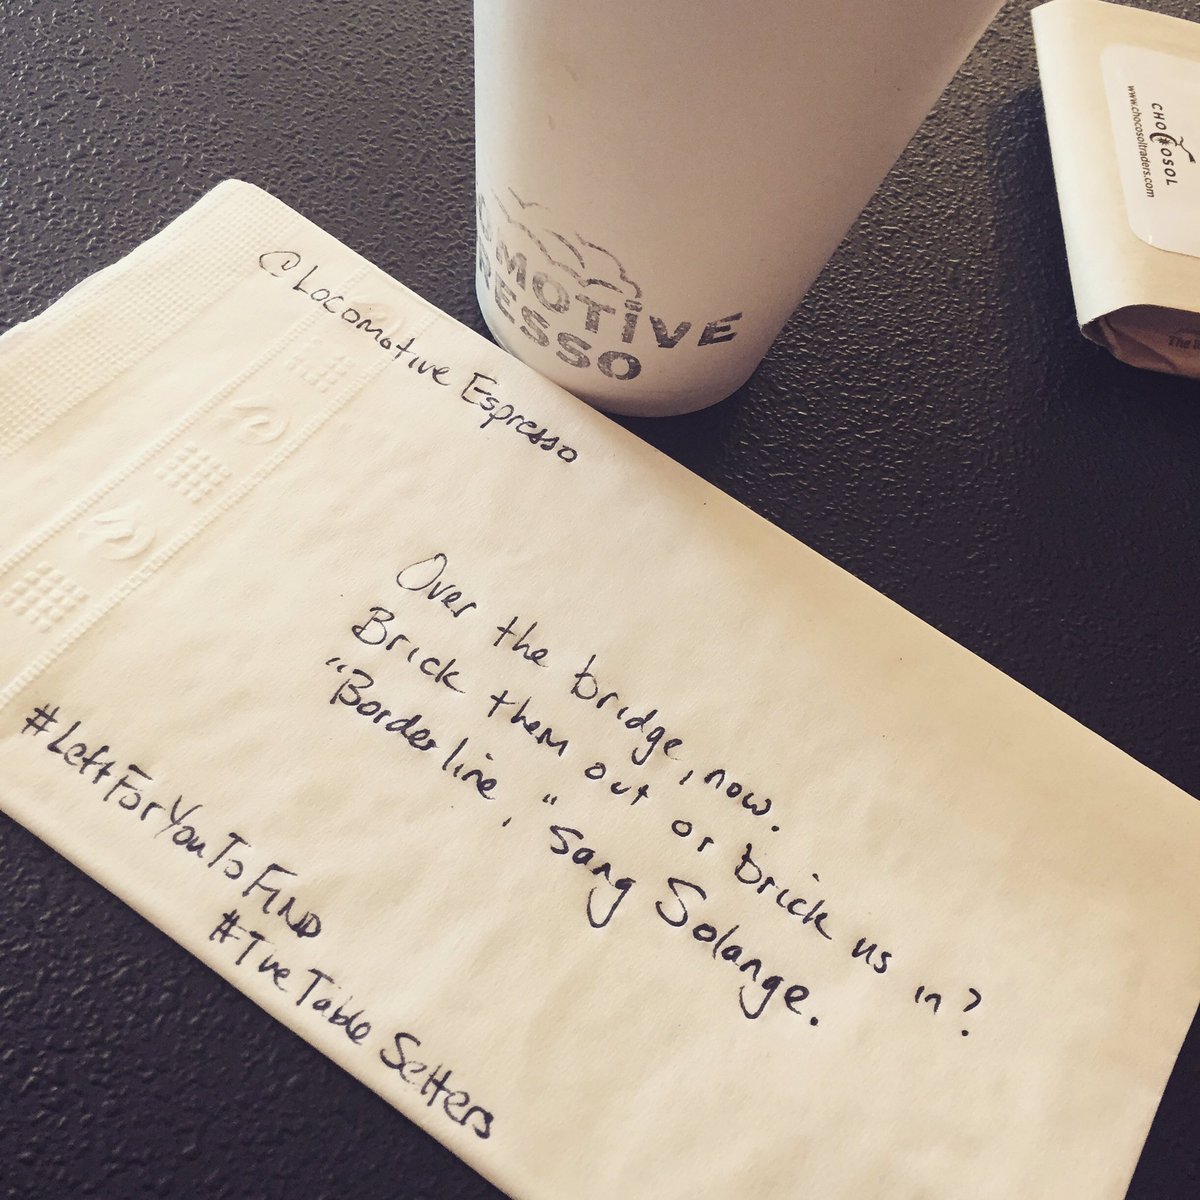 CHOCOSOL
www.chocosoltraders.com
OMOTIVE
RESSO
@ Locomotive Espresso
Over the bridge, now.
Brick them out or brick us in?
"Borderline," sang Solange.
#LeftForYouToFIND
#TheTableSetters